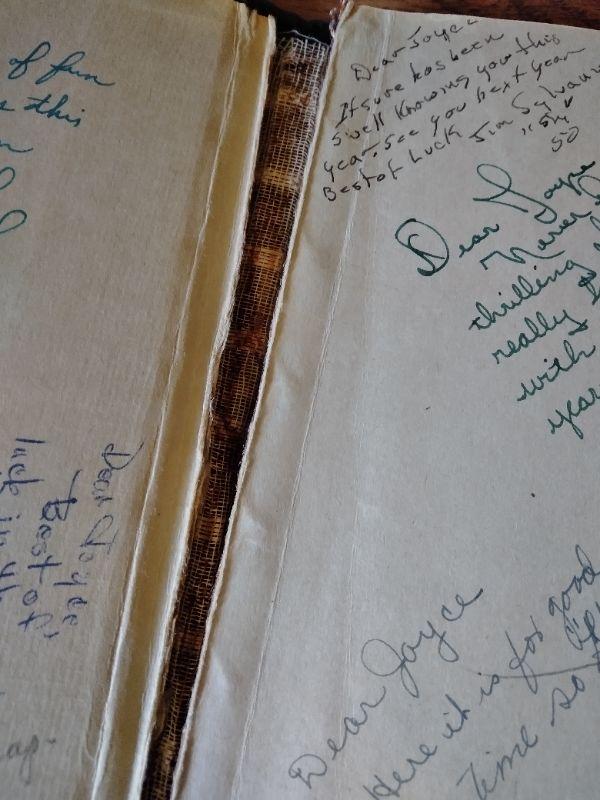 of fun
this
Dear Joyce,
Best of
luck in th
Dear Joyce
It sure has been
swell knowing you this
year. See you next year
Best of Luck Jim Sylvan
50
Dear Joyce
Never
thrilling
really
with
year
Dear Joyce
Here it is for good
Time so